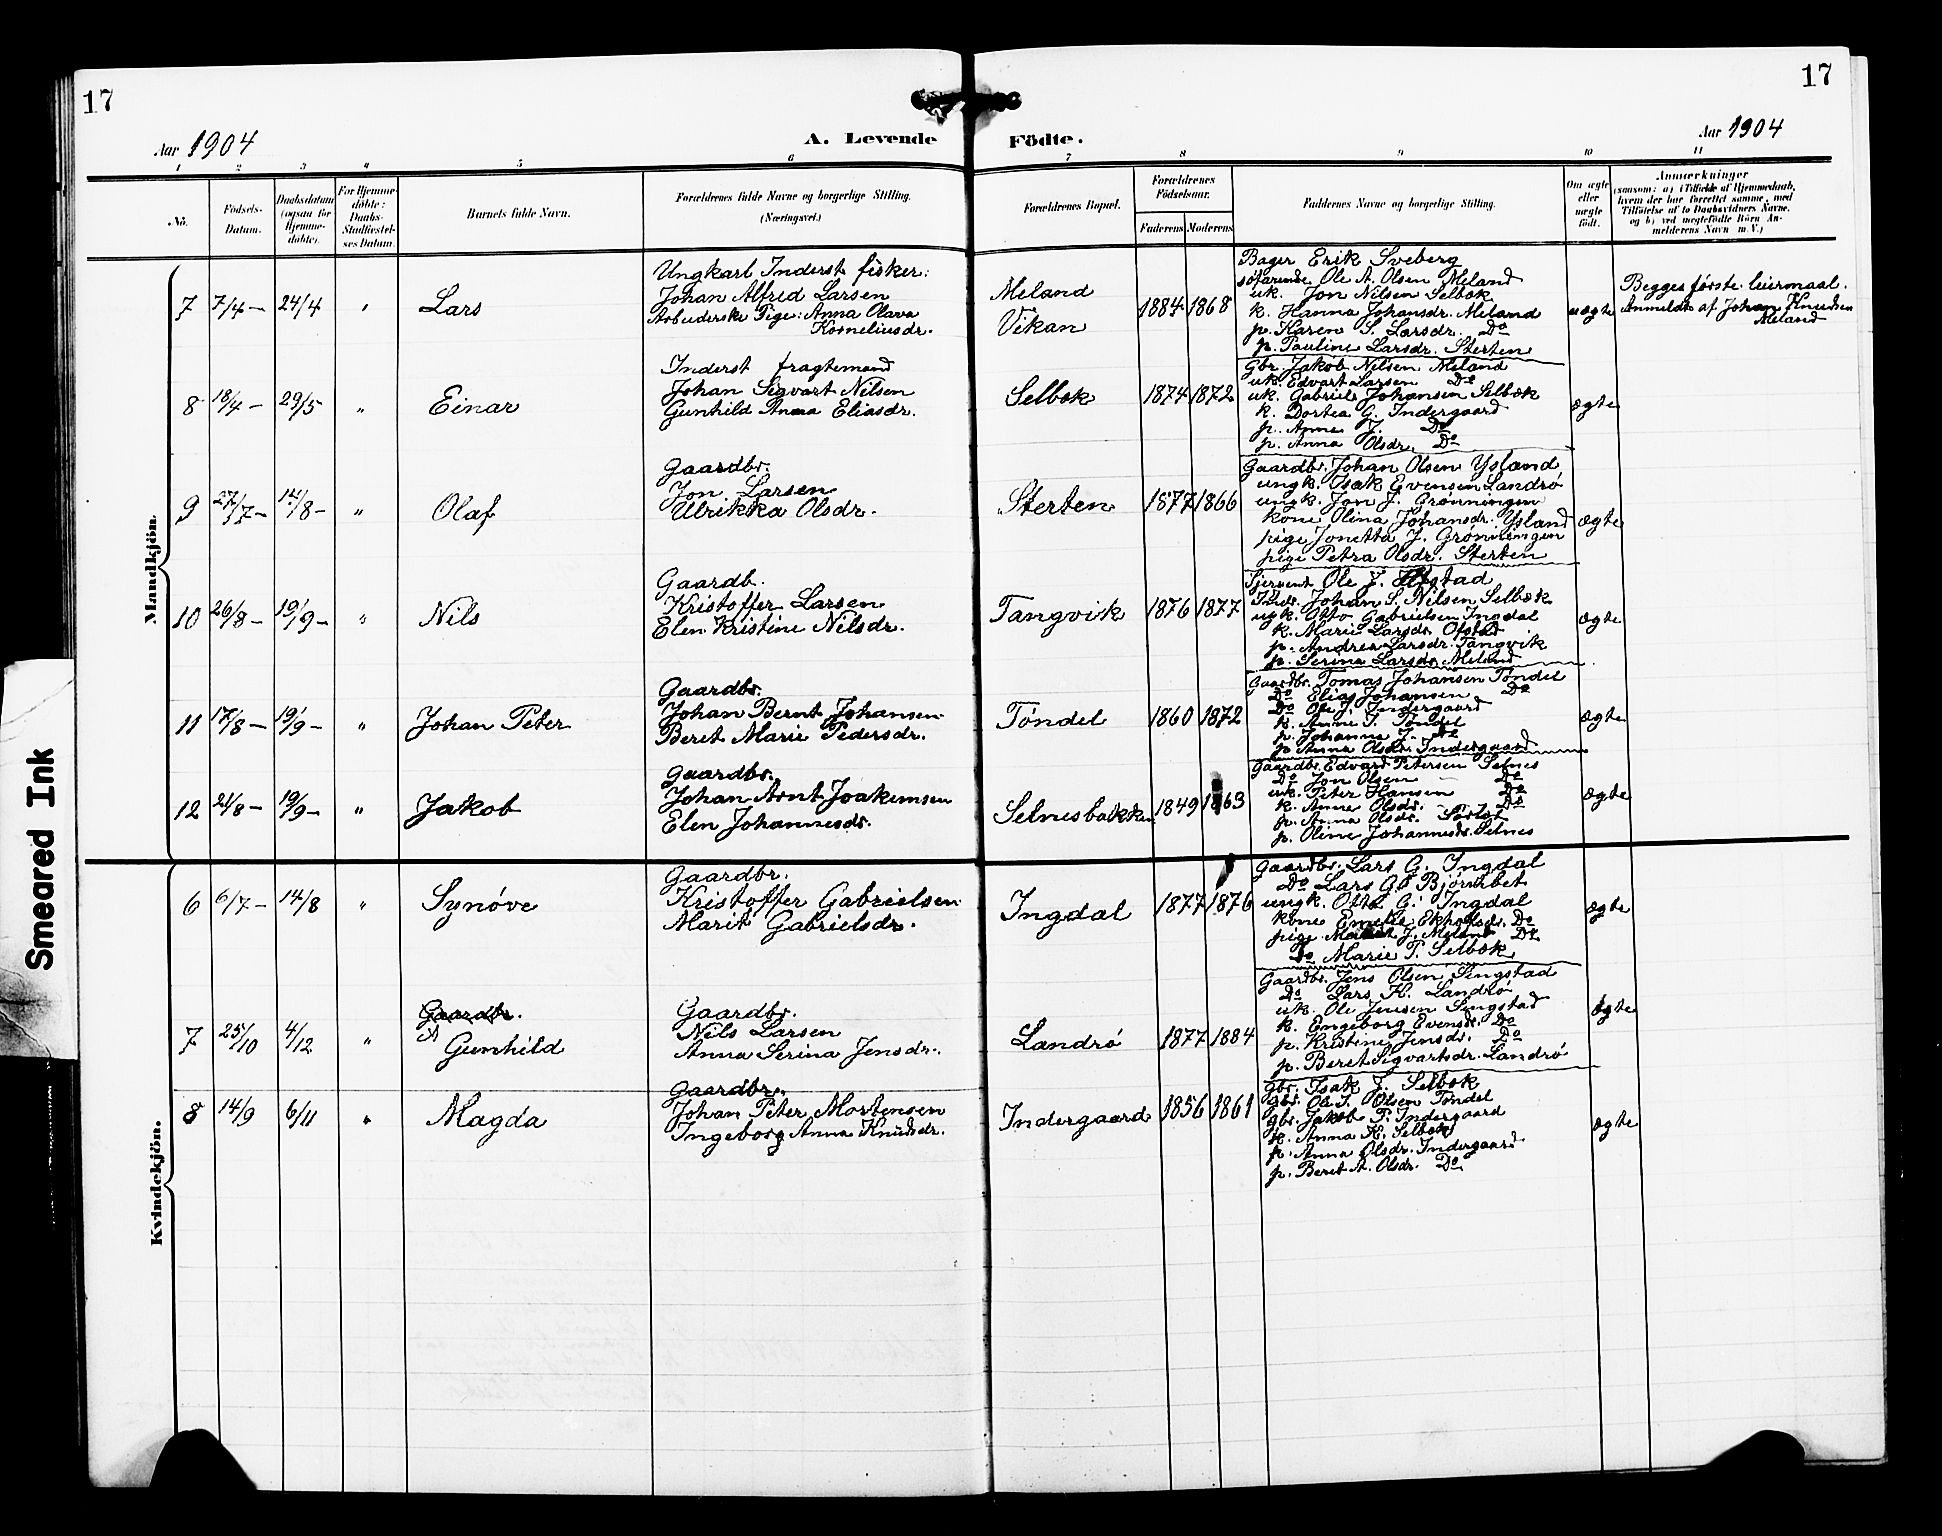 17
17
Aar 1904
A. Levende
Födte.
Aar 1904
1 2 3 4 5 6 7 8 9 10 11
No.
Födsels-
Datum.
Daabsdatum
(ogsaa for
Hjemme-
døbte).
For Hjemme-
døbte:
Daabs-
Stadfæstel-
ses Datum.
Barnets fulde Navn.
Forældrenes fulde Navne og borgerlige Stilling.
(Næringsvei.)
Forældrenes Bopæl.
Forældrenes
Födselsaar.
Faderens
Moderens
Faddernes Navne og borgerlige Stilling.
Om ægte
eller
uægte
født.
Anmærkninger
(saasom: a) i Tilfælde af Hjemmedaab,
hvem der har forrettet samme, med
Tilföielse af to Daabsvidners Navne,
og b) ved uegtefödte Börn An-
melderens Navn m. V.)
Mandkjön.
7
7/4 -
24/4
"
Lars
Ungkarl Inderst fisker:
Johan Alfred Larsen
Arbeiderske Pige: Anna Olava
Korneliusdr.
Meland
Vikan
1884
1868
Bager Erik Sveberg
söfarende Ole A. Olsen Meland
uk. Jon Nilsen Selbæk
k. Hanna Johansdr. Meland
p. Karen S. Larsdr. Do
p. Pauline Larsdr. Sterten
uægte
Begges første leiermaal.
Anmeldt af Johan Knudsen
Meland
8
18/4 -
29/5
"
Einar
Inderst fragtemand
Johan Sigvart Nilsen
Gunhild Anna Eliasdr.
Selbæk
1874
1872
Gbr. Jakob Nilsen Meland
uk. Edvart Larsen Do
uk. Gabriel Johansen Selbæk
k. Dortea G. Indergaard
p. Anne J. Do
p. Anna Olsdr. Do
ægte
9
27/7 -
14/8 -
"
Olaf
Gaardbr.
Jon Larsen
Ulrikka Olsdr.
Sterten
1877
1866
Gaardbr. Johan Olsen Ysland
ungk. Isak Evensen Landrø
ungk. Jon J. Grønningen
kone Olina Johansdr. Ysland
pige Jonetta J. Grønningen
pige Petra Olsdr. Sterten
ægte
10
26/8 -
19/9 -
"
Nils
Gaardb.
Kristoffer Larsen
Elen Kristine Nilsdr.
Tangvik
1876
1877
Ole J.
Inds. Johan S. Nilsen Selbæk
ugk. Otto Gabrielsen Ingdal
k. Marie Larsdr. Ofstad
p. Andrea Larsdr. Tangvik
p. Serina Larsdr. Meland
ægte
11
17/8 -
19/9 -
"
Johan Peter
Gaardbr.
Johan Bernt Johansen
Beret Marie Pedersdr.
Tøndel
1860
1872
Gaardbr. Tomas Johansen Tøndel
Do Elias Johansen Do
Do Ole J. Indergaard
k. Anne J. Tøndel
p. Johanna J. Do
p. Anna Olsdr. Indergaard
ægte
12
21/8 -
19/9 -
"
Jakob
Gaardbr.
Johan Arnt Joakimsen
Elen Johannesdr.
Selnesbakken
1849
1863
Gaardbr. Edvard Petersen Selnes
Do Jon Olsen - Do
uk. Peter Hansen Do
k. Anne Olsdr. - Do
p. Anna Olsdr.
p. Oline Johannesdr. Selnes
ægte
Kvindekjön.
6
6/7 -
14/8
"
Synøve
Gaardbr.
Kristoffer Gabrielsen
Marit Gabrielsdr.
Ingdal
1877
1876
Gaardbr. Lars G. Ingdal
Do Lars
ungk. Otto G. Ingdal
kone Do
pige J. Meland Do
Do Marie P. Selbæk
ægte
7
25/10
4/12
"
Gaardbr.
Gunhild
Gaardbr.
Nils Larsen
Anna Serina Jensdr.
Landrø
1877
1884
Gaardbr. Jens Olsen Singstad
Do Lars K. Landrø
uk. Ole Jensen Singstad
k. Engeborg Evensdr. Do
p. Kristine Jensdr. Do
p. Beret Sigvartsdr. Landrø
ægte
8
14/9
6/11
"
Magda
Gaardbr.
Johan Peter Mortensen
Ingeborg Anna Knudsdr.
Indergaard
1856
1861
gbr. Isak J. Selbæk
Gbr. Ole J. Olsen Tøndel
gbr. Jakob P. Indergaard
k. Anna K. Selbæk
p. Anna Olsdr. Indergaard
p. Beret A. Olsdr. Do
ægte
Smeared Ink